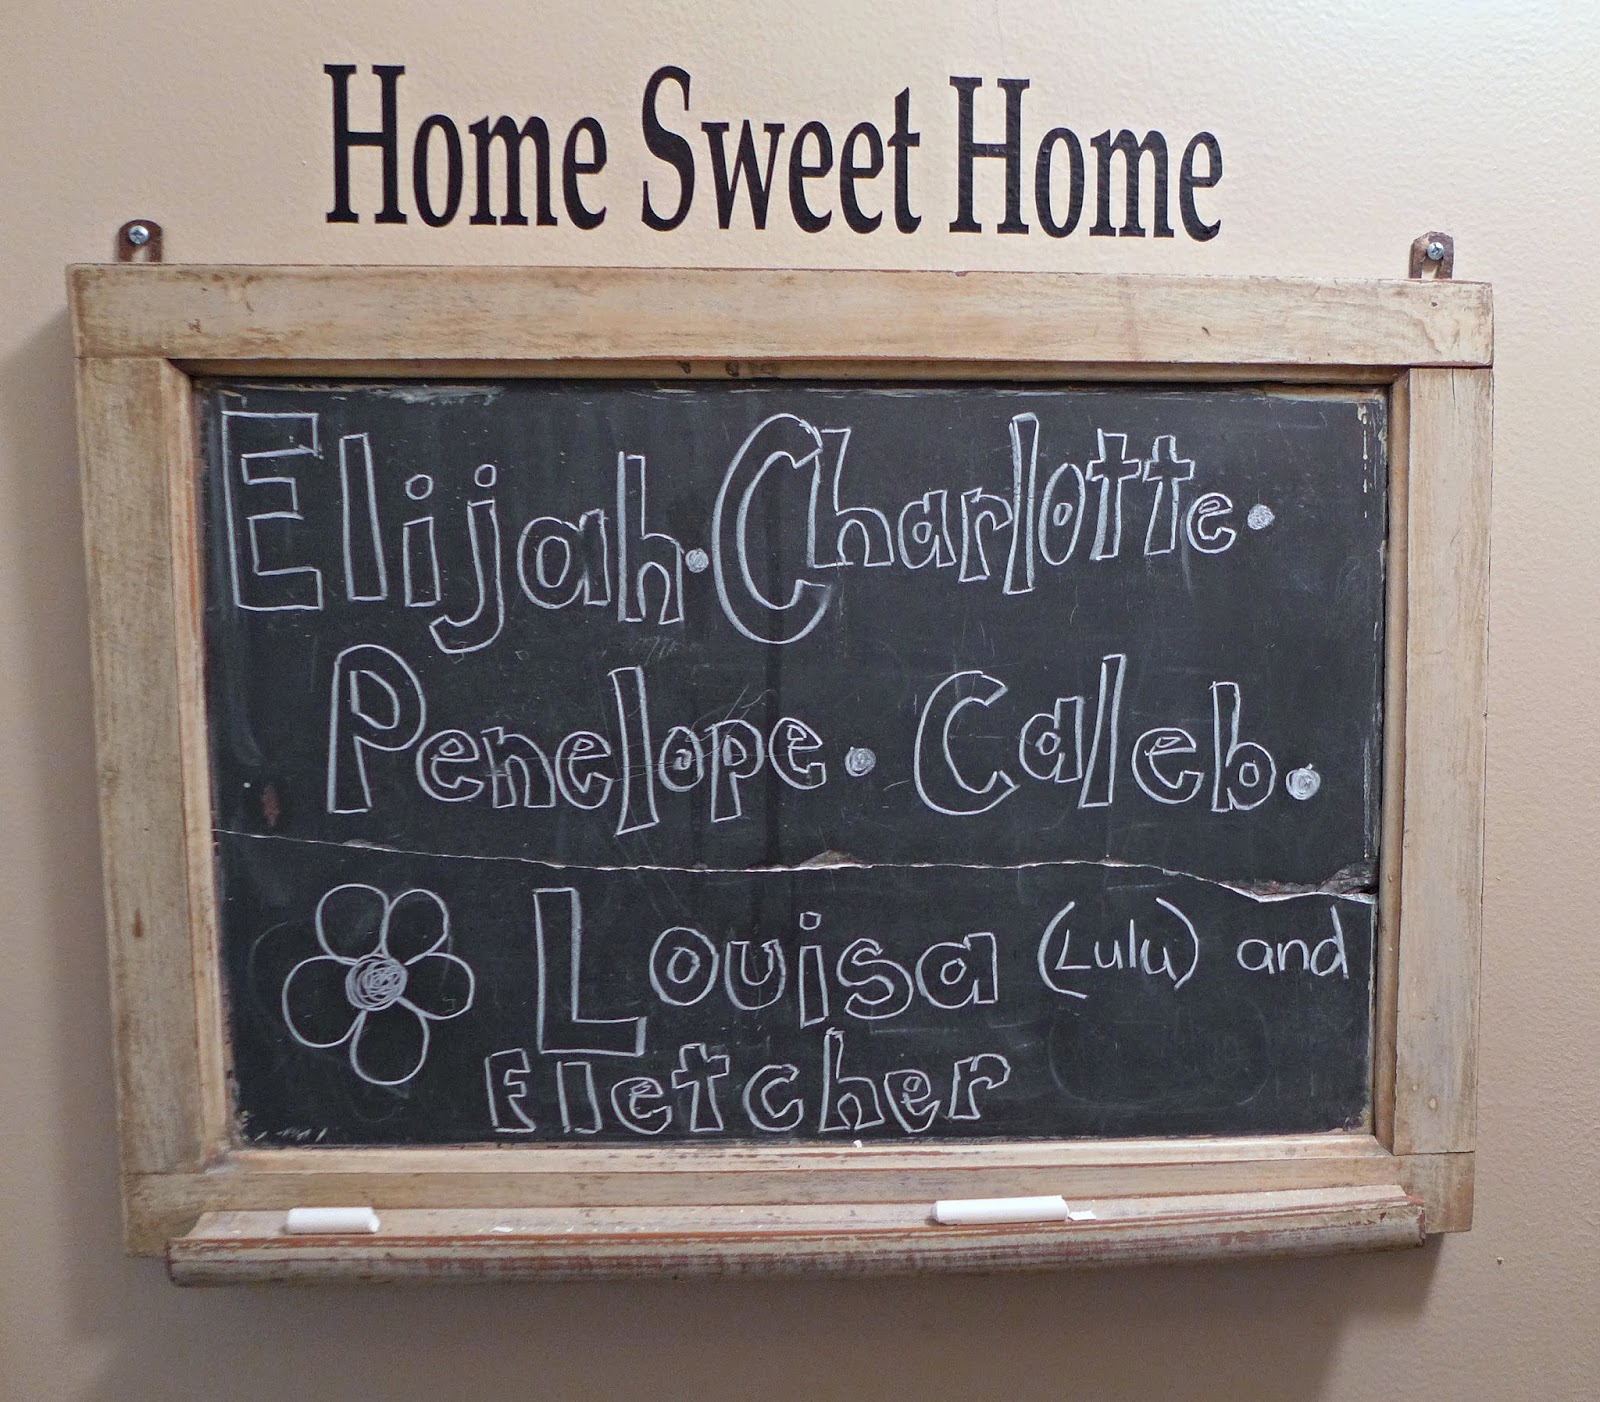 Home Sweet Home
Elijah • Charlotte •
Penelope • Caleb •
Louisa (Lulu) and
Fletcher